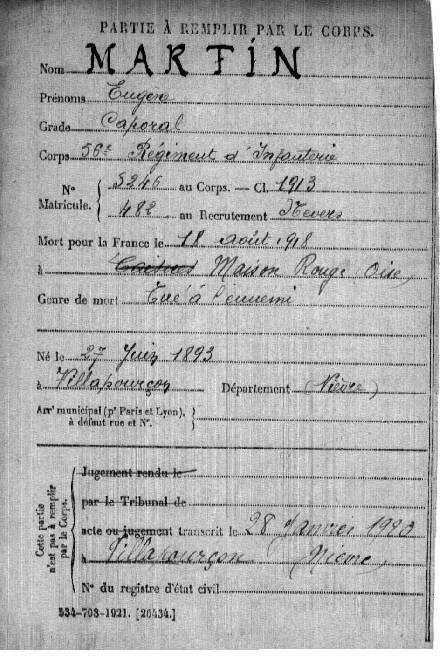 PARTIE À REMPLIR PAR LE CORPS.
Nom MARTIN
Prénoms Eugène
Grade Caporal
Corps 56e Régiment d'Infanterie
N° Matricule. { 5246 au Corps. — Cl. 1913
482 au Recrutement Nevers
Mort pour la France le 18 août 1918
à Maison Rouge (Oise)
Genre de mort Tué à l'ennemi
Né le 27 Juin 1893
à Villapourçon Département (Nièvre)
Arrt municipal (pr Paris et Lyon), à défaut rue et N°. }
Cette partie n'est pas à remplir par le Corps.
Jugement rendu le
par le Tribunal de
acte ou jugement transcrit le 28 Janvier 1923
à Villapourçon Nièvre
N° du registre d'état civil
534-708-1921. [26434.]